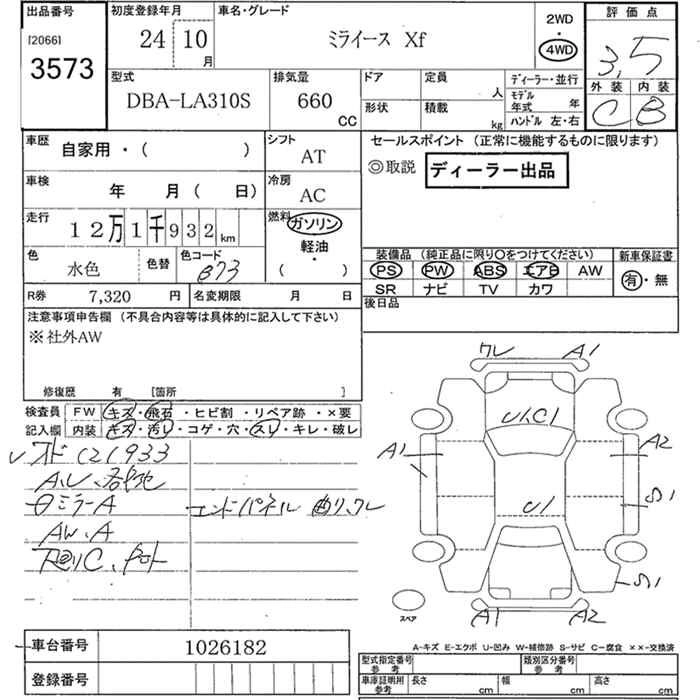 出品番号 初度登録年月 車名・グレード 評価点
[2066] 24 10 月 ミライース Xf 2WD 4WD 3,5
3573
型式 排気量 ドア 定員 人 ディーラー・並行 外装 内装
DBA-LA310S 660 CC 形状 積載 kg モデル年式 年 C B
ハンドル 左・右
車歴 自家用・( ) シフト AT セールスポイント (正常に機能するものに限ります)
◎取説 ディーラー出品
車検 年 月( 日) 冷房 AC
走行 12万1千932 km 燃料 ガソリン 軽油・( )
色 水色 色替 色コード B73
装備品 (純正品に限り○をつけてください) 新車保証書
PS PW ABS エアB AW 有・無
SR ナビ TV カワ
R券 7,320 円 名変期限 月 日 後日品
注意事項申告欄 (不具合内容等は具体的に記入して下さい)
※社外AW
修復歴 有 [箇所 ]
検査員 FW キズ・飛石・ヒビ割・リペア跡・×要
記入欄 内装 キズ・汚レ・コゲ・穴・スレ・キレ・破レ
ワレ A1
U1,C1
A1 A2
U1 S1
S1
A1 A2
スペア
121933
A,U、各所
ミラーA
エンドパネル 曲リ、ワレ
AW、A
A-キズ E-エクボ U-凹み W-補修跡 S-サビ C-腐食 ××-交換済
車台番号 1026182 型式指定番号 参考 類別区分番号 参考
登録番号 車庫証明用 参考 長さ cm 幅 cm 高さ cm